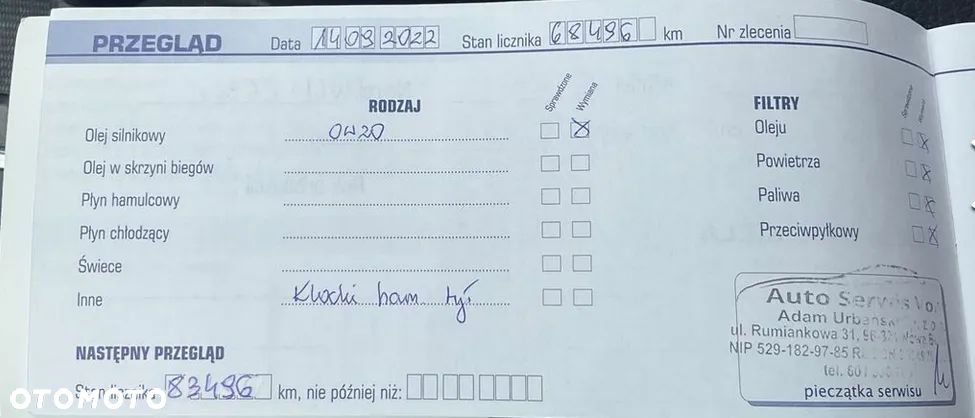 PRZEGLĄD Data 14092022 Stan licznika 68496 km Nr zlecenia
RODZAJ Sprawdzone Wymiana FILTRY Sprawdzone Wymiana
Olej silnikowy 0W20 Oleju
Olej w skrzyni biegów Powietrza
Płyn hamulcowy Paliwa
Płyn chłodzący Przeciwpyłkowy
Świece
Inne Klocki ham tył
Auto Serwis
Adam Urbańsk
ul. Rumiankowa 31, 96-32
NIP 529-182-97-85
tel.
pieczątka serwisu
NASTĘPNY PRZEGLĄD
Stan licznika 83496 km, nie później niż:
OTOMOTO